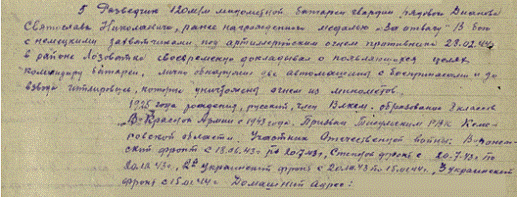 5. Разведчик 120 м/м минометной батареи гвардии рядового Дианова
Святослава Николаевича, ранее награжденного медалью "За отвагу" В бою
с немецкими захватчиками, под артиллерийским огнем противника 28.02.44
в районе Лозоватка своевременно докладывал о появляющихся целях
командиру батареи, лично обнаружил две автомашины с боеприпасами и до
взвода гитлеровцев, которые уничтожены огнем из минометов.
1925 года рождения, русский, член ВЛКСМ, образование 8 классов
В Красной Армии с 1943 года. Призван РВК Кеме-
ровской области. Участник Отечественной войны: Воронеж-
ский фронт с 18.06.43 по 20.7.43г, Степной фронт с 20.7.43 по
20.10.43г, 2й украинский фронт с 20.10.43 по 15.01.44г, 3 украинский
фронт с 15.01.44г. Домашний адрес: